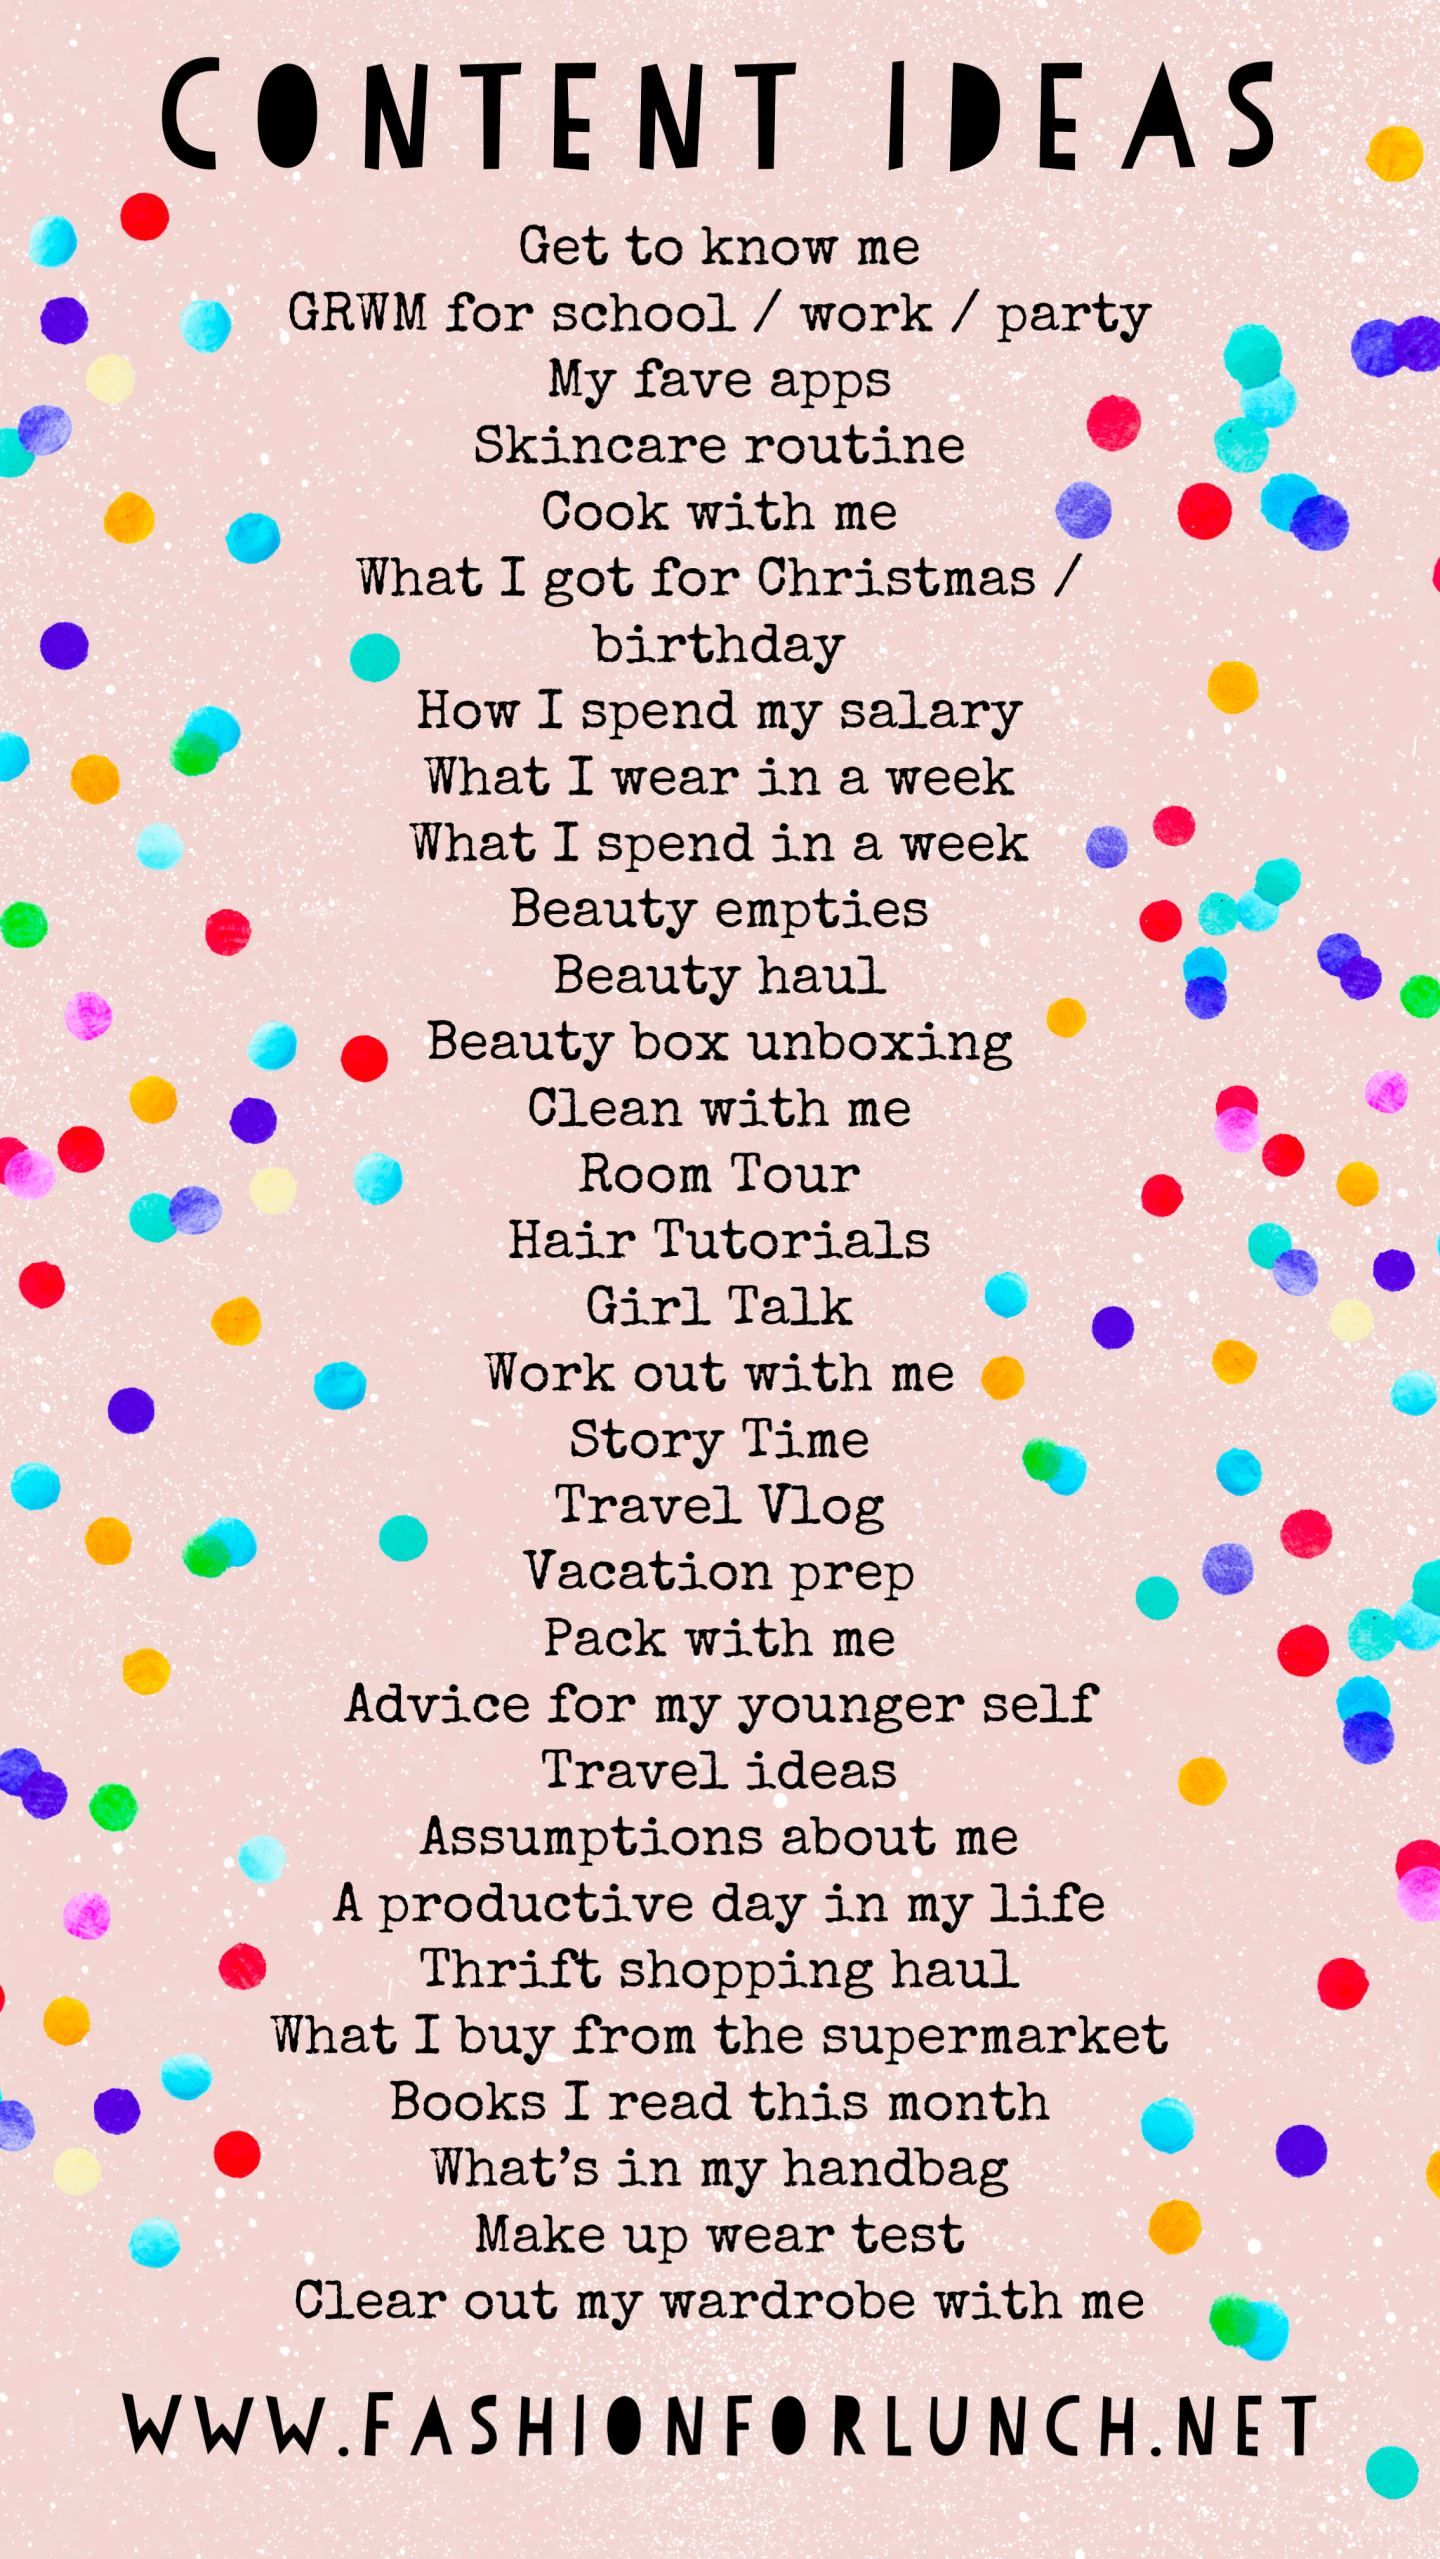 CONTENT IDEAS
Get to know me
GRWM for school / work / party
My fave apps
Skincare routine
Cook with me
What I got for Christmas /
birthday
How I spend my salary
What I wear in a week
What I spend in a week
Beauty empties
Beauty haul
Beauty box unboxing
Clean with me
Room Tour
Hair Tutorials
Girl Talk
Work out with me
Story Time
Travel Vlog
Vacation prep
Pack with me
Advice for my younger self
Travel ideas
Assumptions about me
A productive day in my life
Thrift shopping haul
What I buy from the supermarket
Books I read this month
What’s in my handbag
Make up wear test
Clear out my wardrobe with me
WWW.FASHIONFORLUNCH.NET